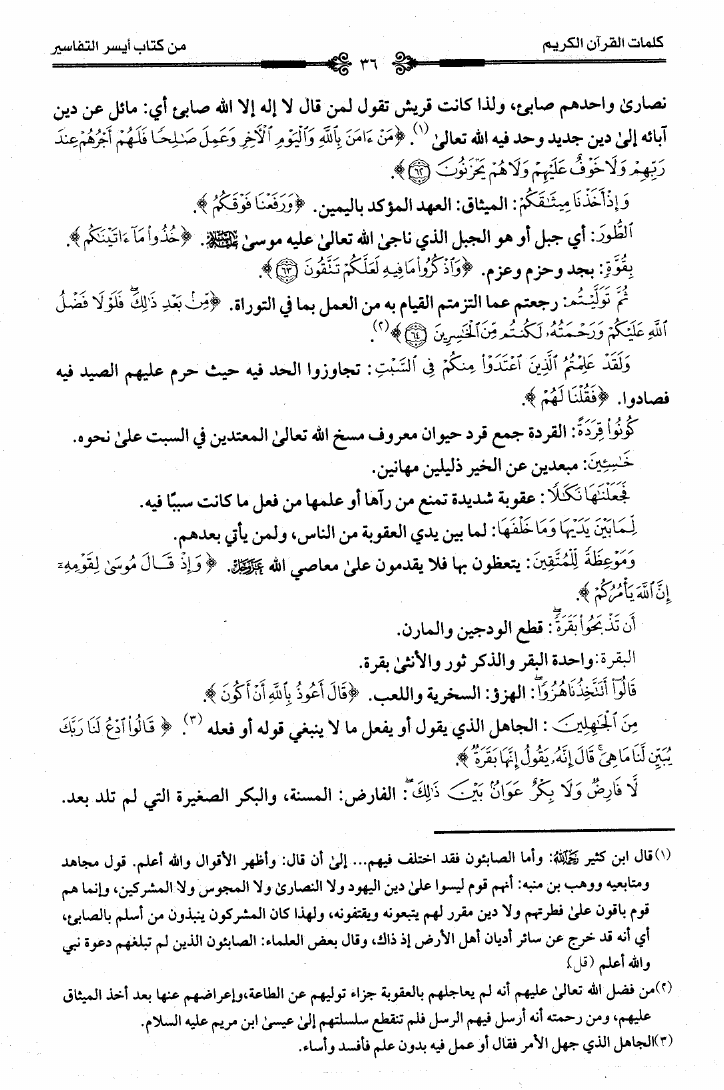 كلمات القرآن الكريم
من كتاب أيسر التفاسير
٣٦
نصارىٰ واحدهم صابئ، ولذا كانت قريش تقول لمن قال لا إله إلا الله صابئ أي: مائل عن دين
آبائه إلىٰ دين جديد وحد فيه الله تعالىٰ (١). ﴿مَنْ ءَامَنَ بِٱللَّهِ وَٱلْيَوْمِ ٱلْأَخِرِ وَعَمِلَ صَٰلِحًا فَلَهُمْ أَجْرُهُمْ عِندَ
رَبِّهِمْ وَلَا خَوْفٌ عَلَيْهِمْ وَلَا هُمْ يَحْزَنُونَ ٦٢﴾.
وَإِذْ أَخَذْنَا مِيثَٰقَكُمْ: الميثاق: العهد المؤكد باليمين. ﴿وَرَفَعْنَا فَوْقَكُمُ﴾.
ٱلطُّورَ: أي جبل أو هو الجبل الذي ناجىٰ الله تعالىٰ عليه موسىٰ ﷺ. ﴿خُذُواْ مَآ ءَاتَيْنَٰكُم﴾.
بِقُوَّةٍ: بجد وحزم وعزم. ﴿وَٱذْكُرُواْ مَا فِيهِ لَعَلَّكُمْ تَتَّقُونَ ٦٣﴾.
ثُمَّ تَوَلَّيْتُم: رجعتم عما التزمتم القيام به من العمل بما في التوراة. ﴿مِّنۢ بَعْدِ ذَٰلِكَۖ فَلَوْلَا فَضْلُ
ٱللَّهِ عَلَيْكُمْ وَرَحْمَتُهُۥ لَكُنتُم مِّنَ ٱلْخَٰسِرِينَ ٦٤﴾ (٢).
وَلَقَدْ عَلِمْتُمُ ٱلَّذِينَ ٱعْتَدَوْاْ مِنكُمْ فِى ٱلسَّبْتِ: تجاوزوا الحد فيه حيث حرم عليهم الصيد فيه
فصادوا. ﴿فَقُلْنَا لَهُمْ﴾.
كُونُواْ قِرَدَةً: القردة جمع قرد حيوان معروف مسخ الله تعالىٰ المعتدين في السبت علىٰ نحوه.
خَٰسِـِٔينَ: مبعدين عن الخير ذليلين مهانين.
فَجَعَلْنَٰهَا نَكَٰلًا: عقوبة شديدة تمنع من رآها أو علمها من فعل ما كانت سببًا فيه.
لِّمَا بَيْنَ يَدَيْهَا وَمَا خَلْفَهَا: لما بين يدي العقوبة من الناس، ولمن يأتي بعدهم.
وَمَوْعِظَةً لِّلْمُتَّقِينَ: يتعظون بها فلا يقدمون علىٰ معاصي الله عَزَّوَجَلَّ. ﴿وَإِذْ قَالَ مُوسَىٰ لِقَوْمِهِۦٓ
إِنَّ ٱللَّهَ يَأْمُرُكُمْ﴾.
أَن تَذْبَحُواْ بَقَرَةًۖ: قطع الودجين والمارن.
البقرة: واحدة البقر والذكر ثور والأنثىٰ بقرة.
قَالُوٓاْ أَتَتَّخِذُنَا هُزُوًاۖ: الهزؤ: السخرية واللعب. ﴿قَالَ أَعُوذُ بِٱللَّهِ أَنْ أَكُونَ﴾.
مِنَ ٱلْجَٰهِلِينَ: الجاهل الذي يقول أو يفعل ما لا ينبغي قوله أو فعله (٣). ﴿قَالُواْ ٱدْعُ لَنَا رَبَّكَ
يُبَيِّن لَّنَا مَا هِىَۚ قَالَ إِنَّهُۥ يَقُولُ إِنَّهَا بَقَرَةٌ﴾.
لَّا فَارِضٌ وَلَا بِكْرٌ عَوَانٌۢ بَيْنَ ذَٰلِكَۖ: الفارض: المسنة، والبكر الصغيرة التي لم تلد بعد.
(١) قال ابن كثير رَحِمَهُ ٱللَّهُ: وأما الصابئون فقد اختلف فيهم... إلىٰ أن قال: وأظهر الأقوال والله أعلم. قول مجاهد
ومتابعيه ووهب بن منبه: أنهم قوم ليسوا علىٰ دين اليهود ولا النصارىٰ ولا المجوس ولا المشركين، وإنما هم
قوم باقون علىٰ فطرتهم ولا دين مقرر لهم يتبعونه ويقتفونه، ولهذا كان المشركون ينبذون من أسلم بالصابئ،
أي أنه قد خرج عن سائر أديان أهل الأرض إذ ذاك، وقال بعض العلماء: الصابئون الذين لم تبلغهم دعوة نبي
والله أعلم (قل)
(٢) من فضل الله تعالىٰ عليهم أنه لم يعاجلهم بالعقوبة جزاء توليهم عن الطاعة، وإعراضهم عنها بعد أخذ الميثاق
عليهم، ومن رحمته أنه أرسل فيهم الرسل فلم تنقطع سلسلتهم إلىٰ عيسىٰ ابن مريم عليه السلام.
(٣) الجاهل الذي جهل الأمر فقال أو عمل فيه بدون علم فأفسد وأساء.